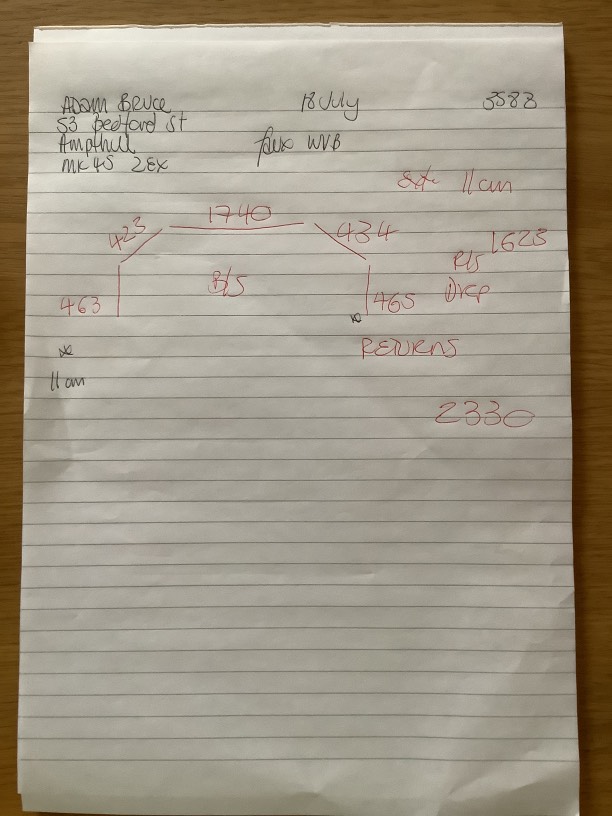 ADAM BRUCE 18 July 3588
53 Bedford St
Ampthill faux WVB
MK45 2EX
Sat 11am
423 1740 434
463 B/S 465 R/S 1623
Drop
RETURNS
11am
2330